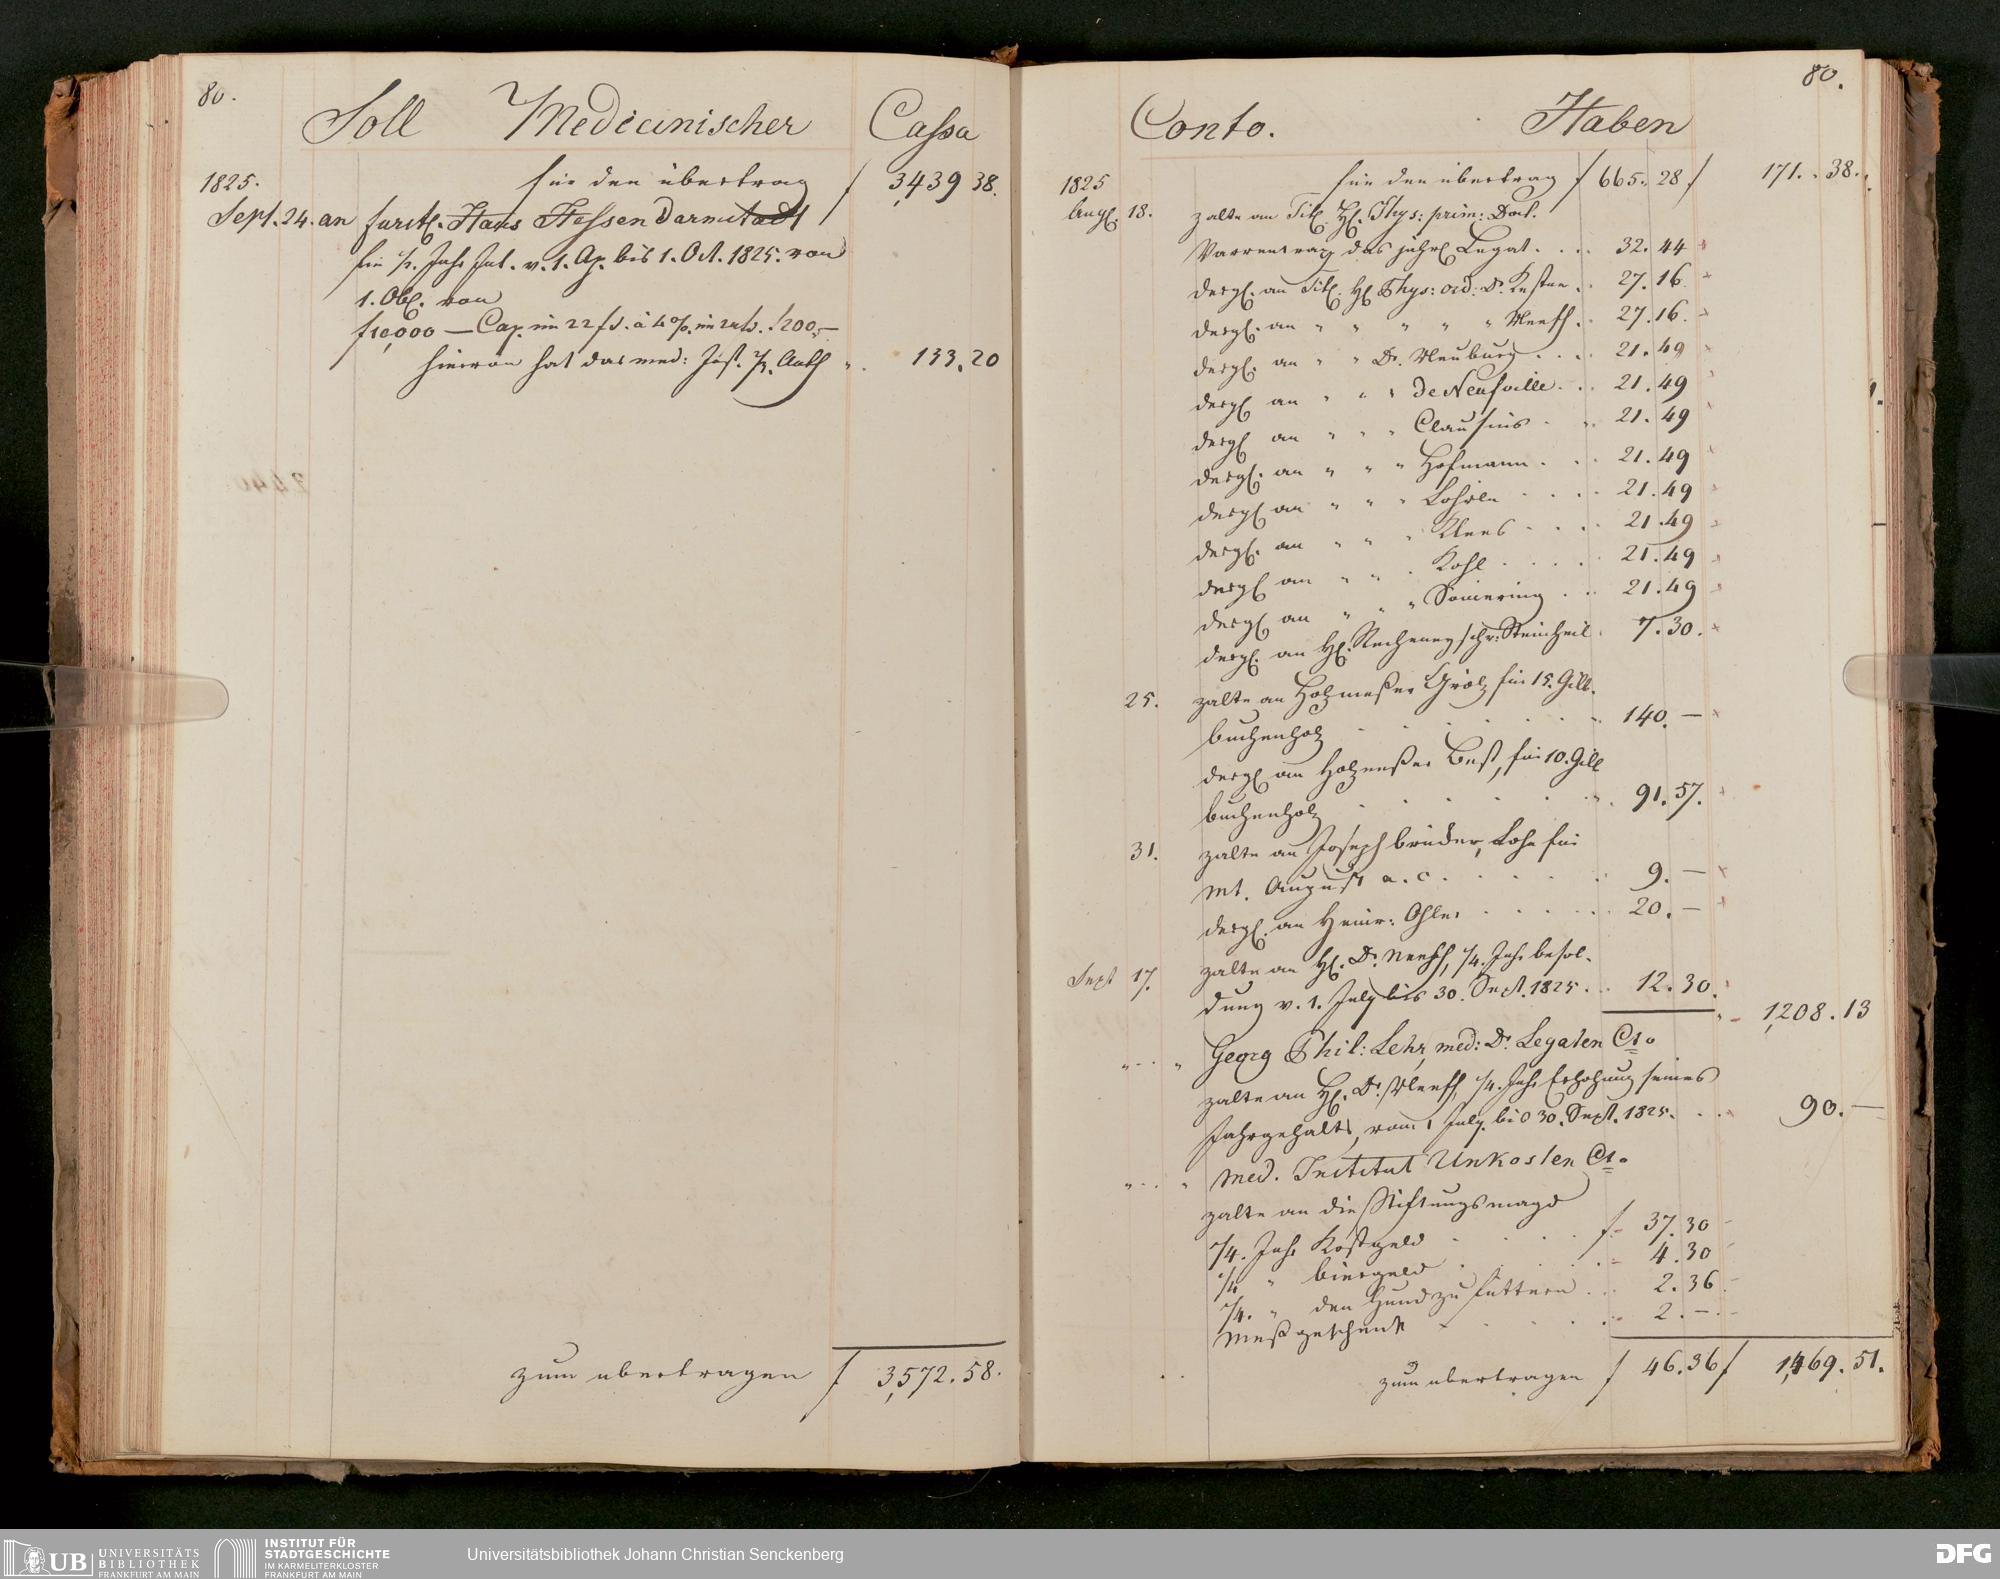 80.
Soll Medicinischer Cassa
1825. für den übertrag f 3,439 38.
Sept. 24. an fürstl. Haus Hessen Darmstadt
für ½ Jahr Int. v. 1. Ap. bis 1. Oct. 1825. von
1. Obl. von
f 10,000 — Cap. im 22 fs. à 4 %. im 24 fs. f 200.—
hiervon hat das med: Inst. ⅔ Anth „ . 133.20
zum übertragen f 3,572.58.
80.
Conto. Haben
1825 für den übertrag f 665. 28 f 171. . 38.
Aug. 18. zalte an Tit. Hl. Phys: prim: Doct.
Varrentrap das jährl Legat . . . 32. 44
desgl. an Tit. Hl Phys: ord: Dr. Kestner . 27. 16.
desgl. an „ „ „ „ „ Neeff . 27. 16.
desgl. an „ „ Dr. Neuburg . . . 21. 49
desgl an „ „ „ de Neufville . . . 21. 49
desgl an „ „ „ Clausius . . 21. 49
desgl. an „ „ „ Hofmann . . . 21. 49
desgl an „ „ „ Lohrln . . . . 21. 49
desgl. an „ „ „ Klees . . . 21. 49
desgl an „ „ . Kohl . . . . 21. 49
desgl an „ „ „ Sömering . . . 21. 49
desgl. an Hl. Recheney schr: Steinheil . 7. 30.
25. zalte an Holzmeßer Grölz für 15. Gill.
buchenholz . . . . . . 140. —
desgl an Holzmeßer Best, für 10. Gill
buchenholz . . . . . 91. 57.
31. zalte an Joseph bruder, Lohn für
Mt. August a. c. . . . . 9. —
desgl. an Heinr: Ohler . . . . 20. —
Sept 17. zalte an Hl. Dr. Neeff, ¼. Jahr besol-
dung v. 1. July bis 30. Sept. 1825 . . 12. 30. „ 1,208. 13
„ . . „ Georg Phil: Lehr, med: Dr. Legaten Cto
zalte an Hl. Dr. Neeff, ¼. Jahr Erhöhung seines
Jahrgehalts, vom 1 July. bis 30. Sept. 1825. . . 90. —
„ . . „ med. Institut Unkosten Cto
zalte an die Stiftungsmagd
¼. Jahr Kostgeld . . . . f. 37. 30
¼ „ biergeld . . . . 4. 30
¼. „ den Hund zu füttern . . . 2. 36.
Meßgeschenk . . . . . 2. —
zum übertragen f 46. 36 f 1,469. 51.
UB UNIVERSITÄTS
BIBLIOTHEK
FRANKFURT AM MAIN
INSTITUT FÜR
STADTGESCHICHTE
IM KARMELITERKLOSTER
FRANKFURT AM MAIN
Universitätsbibliothek Johann Christian Senckenberg
DFG